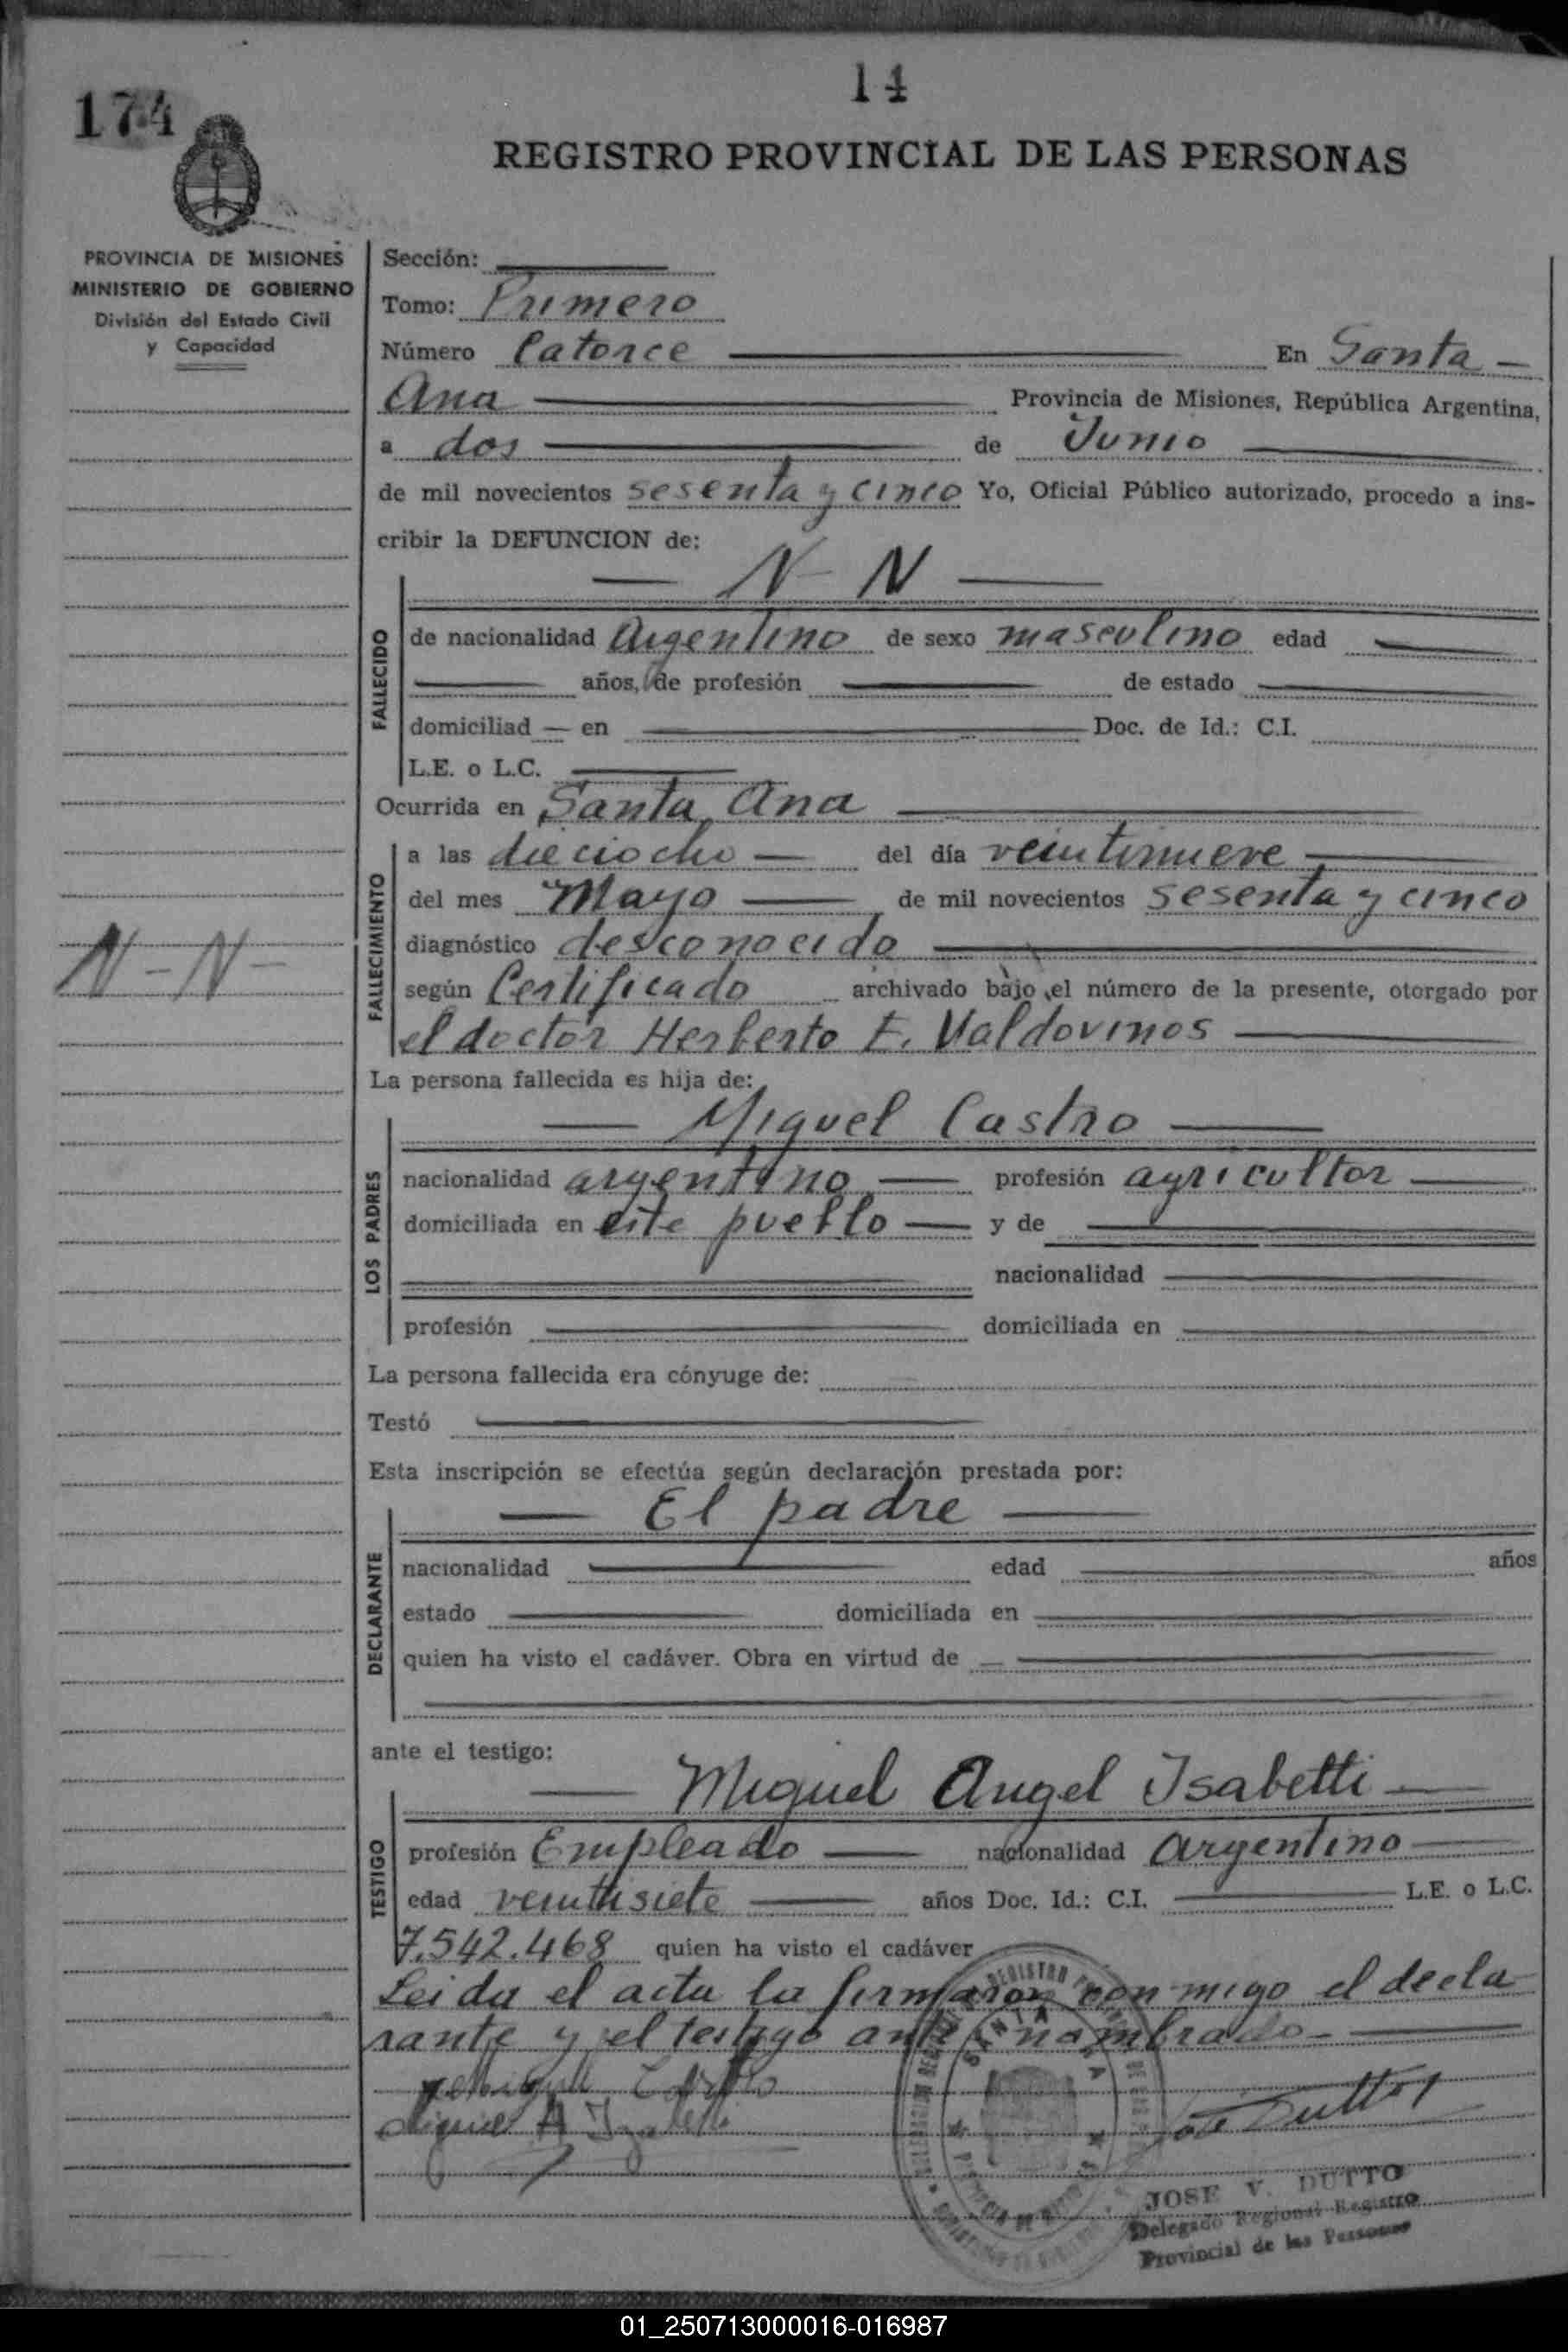 14
174
REGISTRO PROVINCIAL DE LAS PERSONAS
PROVINCIA DE MISIONES
MINISTERIO DE GOBIERNO
División del Estado Civil
y Capacidad
Sección:
Tomo: Primero
Número Catorce En Santa
Ana Provincia de Misiones, República Argentina,
a dos de Junio
de mil novecientos sesenta y cinco Yo, Oficial Público autorizado, procedo a ins-
cribir la DEFUNCION de:
N N
FALLECIDO
de nacionalidad Argentino de sexo masculino edad
años, de profesión de estado
domiciliad en Doc. de Id.: C.I.
L.E. o L.C.
Ocurrida en Santa Ana
FALLECIMIENTO
a las dieciocho del día veintinueve
del mes Mayo de mil novecientos sesenta y cinco
diagnóstico desconocido
N - N -
según Certificado archivado bajo el número de la presente, otorgado por
el doctor Herberto E. Valdovinos
La persona fallecida es hija de:
Miguel Castro
LOS PADRES
nacionalidad argentino profesión agricultor
domiciliada en este pueblo y de
nacionalidad
profesión domiciliada en
La persona fallecida era cónyuge de:
Testó
Esta inscripción se efectúa según declaración prestada por:
El padre
DECLARANTE
nacionalidad edad años
estado domiciliada en
quien ha visto el cadáver. Obra en virtud de
ante el testigo:
Miguel Angel Isabetti
TESTIGO
profesión Empleado nacionalidad argentino
edad veintisiete años Doc. Id.: C.I. L.E. o L.C.
7.542.468 quien ha visto el cadáver
Leida el acta la firmaron conmigo el decla
rante y el testigo ante nombrado-
JOSE V. DUTTO
Delegado Regional Registro
Provincial de las Personas
01_250713000016-016987